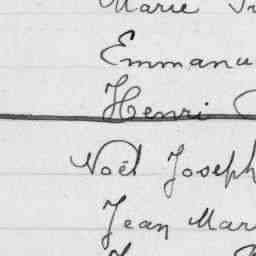 Marie
Emmanu
Henri
Noël Joseph
Jean Mar